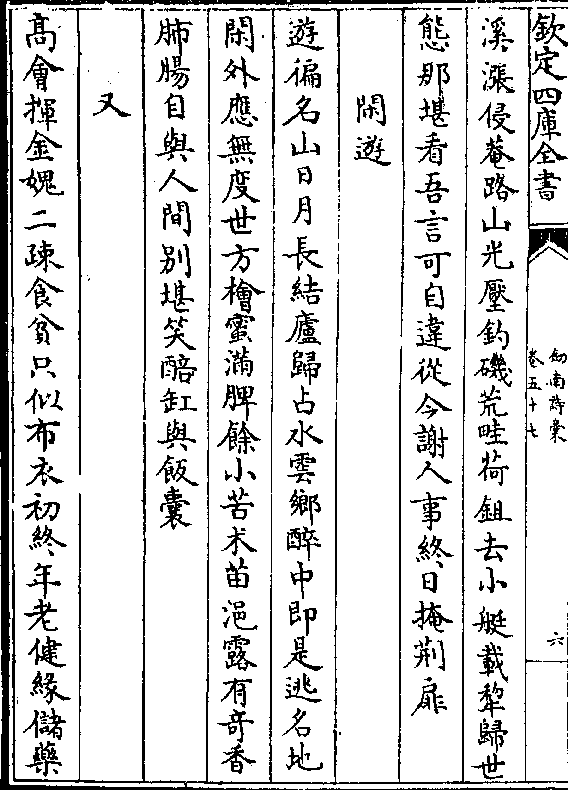 欽定四庫全書
劒南詩稾
卷五十七
六
溪漲侵菴路山光壓釣磯荒畦荷鉏去小艇載犂歸世
態那堪看吾言可自違從今謝人事終日掩荆扉
閑遊
遊徧名山日月長結廬歸占水雲鄉醉中即是逃名地
閑外應無度世方檜蜜滿脾餘小苦朮苗浥露有奇香
肺腸自與人間別堪笑醅缸與飯囊
又
髙會揮金媿二疎食貧只似布衣初終年老健縁儲藥